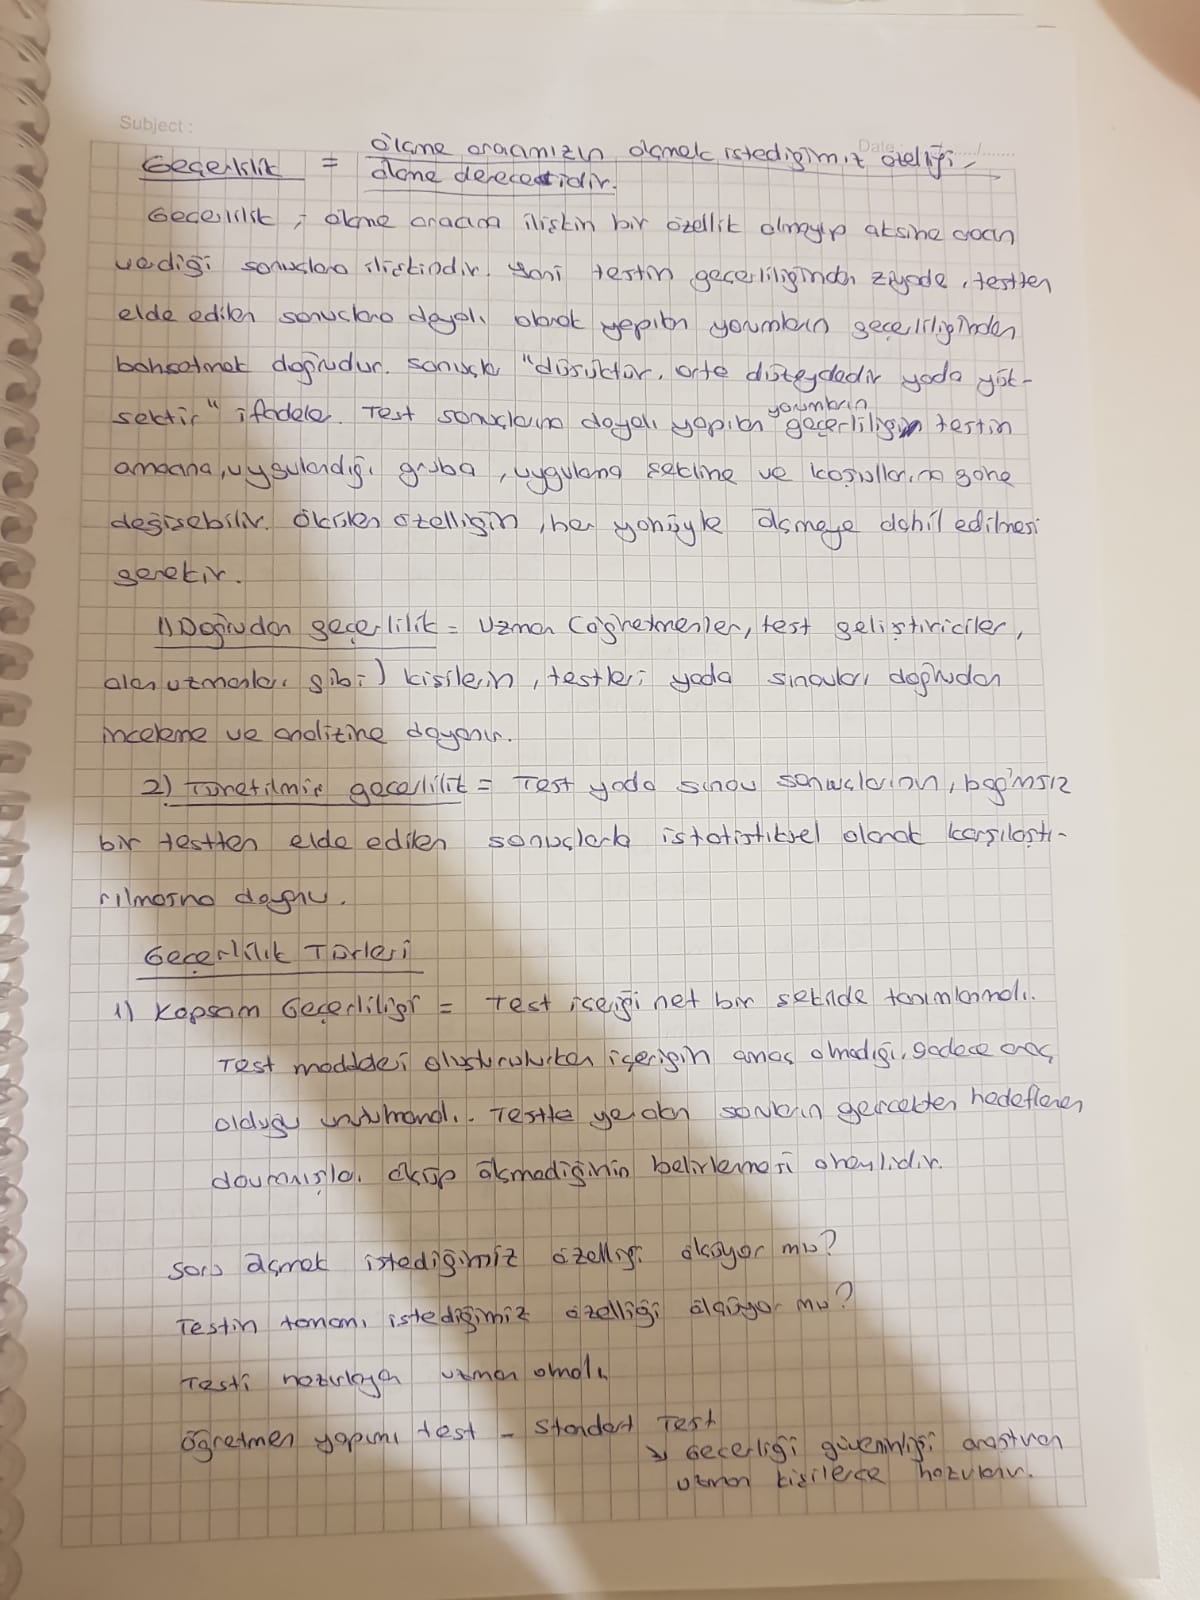 Subject :
Date
Geçerlilik = ölçme aracımızın ölçmek istediğimiz özelliği
ölçme derecesidir.
Geçerlilik, ölçme aracına ilişkin bir özellik olmayıp aksine aracın
verdiği sonuçlara ilişkindir. Yani testin geçerliliğinden ziyade, testten
elde edilen sonuçlara dayalı olarak yapılan yorumların geçerliliğinden
bahsetmek doğrudur. sonuçlar "düşüktür, orta düzeydedir yada yük-
sektir" ifadeler. Test sonuçlarına dayalı yapılan yorumların geçerliliği testin
amacına, uygulandığı gruba, uygulama şekline ve koşullarına göre
değişebilir. Ölçülen özelliğin, her yönüyle ölçmeye dahil edilmesi
gerekir.
1) Doğrudan geçerlilik = Uzman (öğretmenler, test geliştiriciler,
alan uzmanları gibi) kişilerin, testleri yada sınavları doğrudan
inceleme ve analizine dayanır.
2) Türetilmiş geçerlilik = Test yada sınav sonuçlarının, bağımsız
bir testten elde edilen sonuçlarla istatistiksel olarak karşılaştı-
rılmasına dayanır.
Geçerlilik Türleri
1) Kapsam Geçerliliği = Test içeriği net bir şekilde tanımlanmalı.
Test maddeleri oluşturulurken içeriğin amaç olmadığı, sadece araç
olduğu unutulmamalı. Testte yer alan soruların gerçekten hedeflenen
davranışları ölçüp ölçmediğinin belirlenmesi önemlidir.
Soru ölçmek istediğimiz özelliği ölçüyor mu?
Testin tamamı istediğimiz özelliği ölçüyor mu?
Testi hazırlayan uzman olmalı
Öğretmen yapımı test - Standart Test
↳ Geçerliği güvenirliği araştıran
uzman kişilerce hazırlanır.